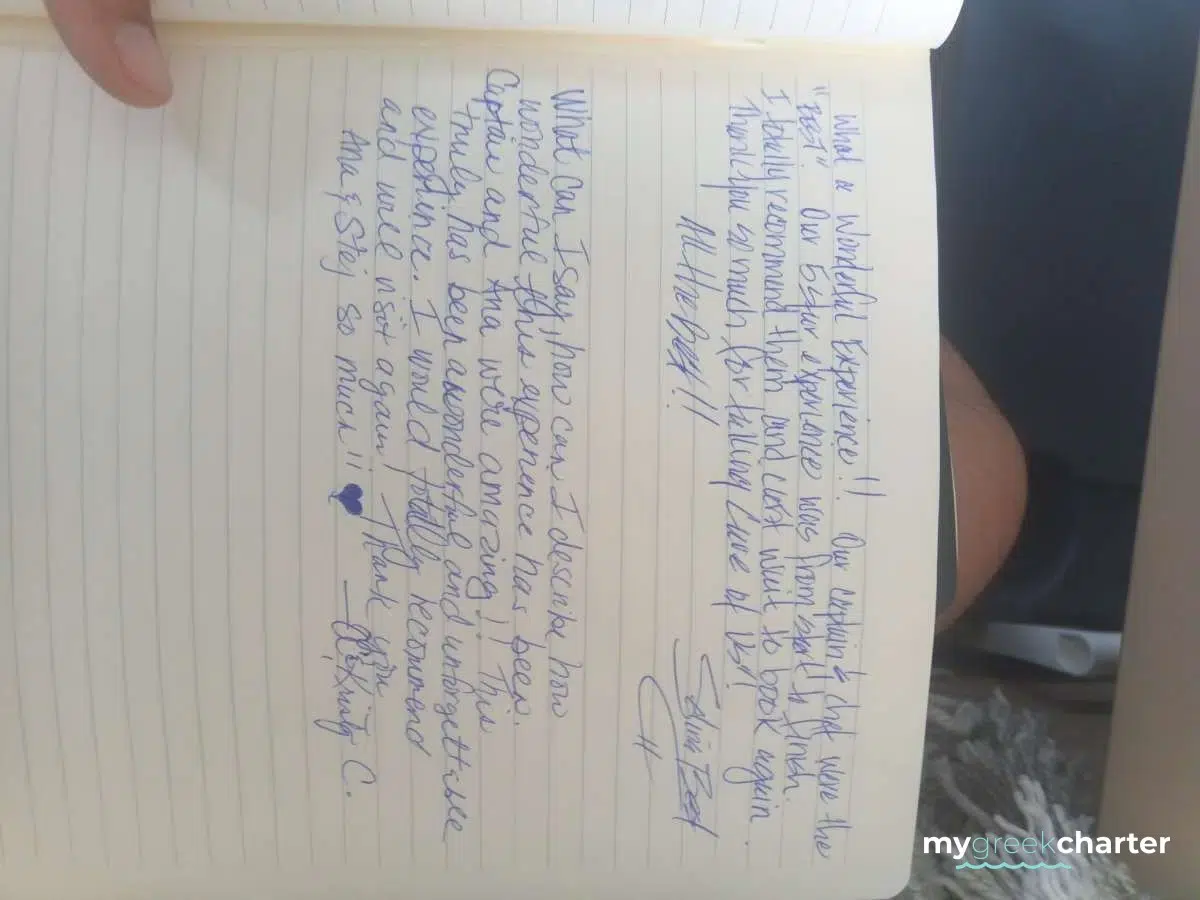 What a Wonderful Experience!! Our captain & chef were the
"Best". Our 5 star experience was from start to finish.
I totally recommend them and cant wait to book again.
Thank you so much for taking Care of Us!
All the Best!!
What Can I say, how can I describe how
wonderful this experience has been.
Captain and Ana were amazing!! This
truly has been a wonderful and unforgettable
experince. I would totally recommend
and will visit again! Thank you
Ana & Stej so much!!
Kristy C.
mygreekcharter